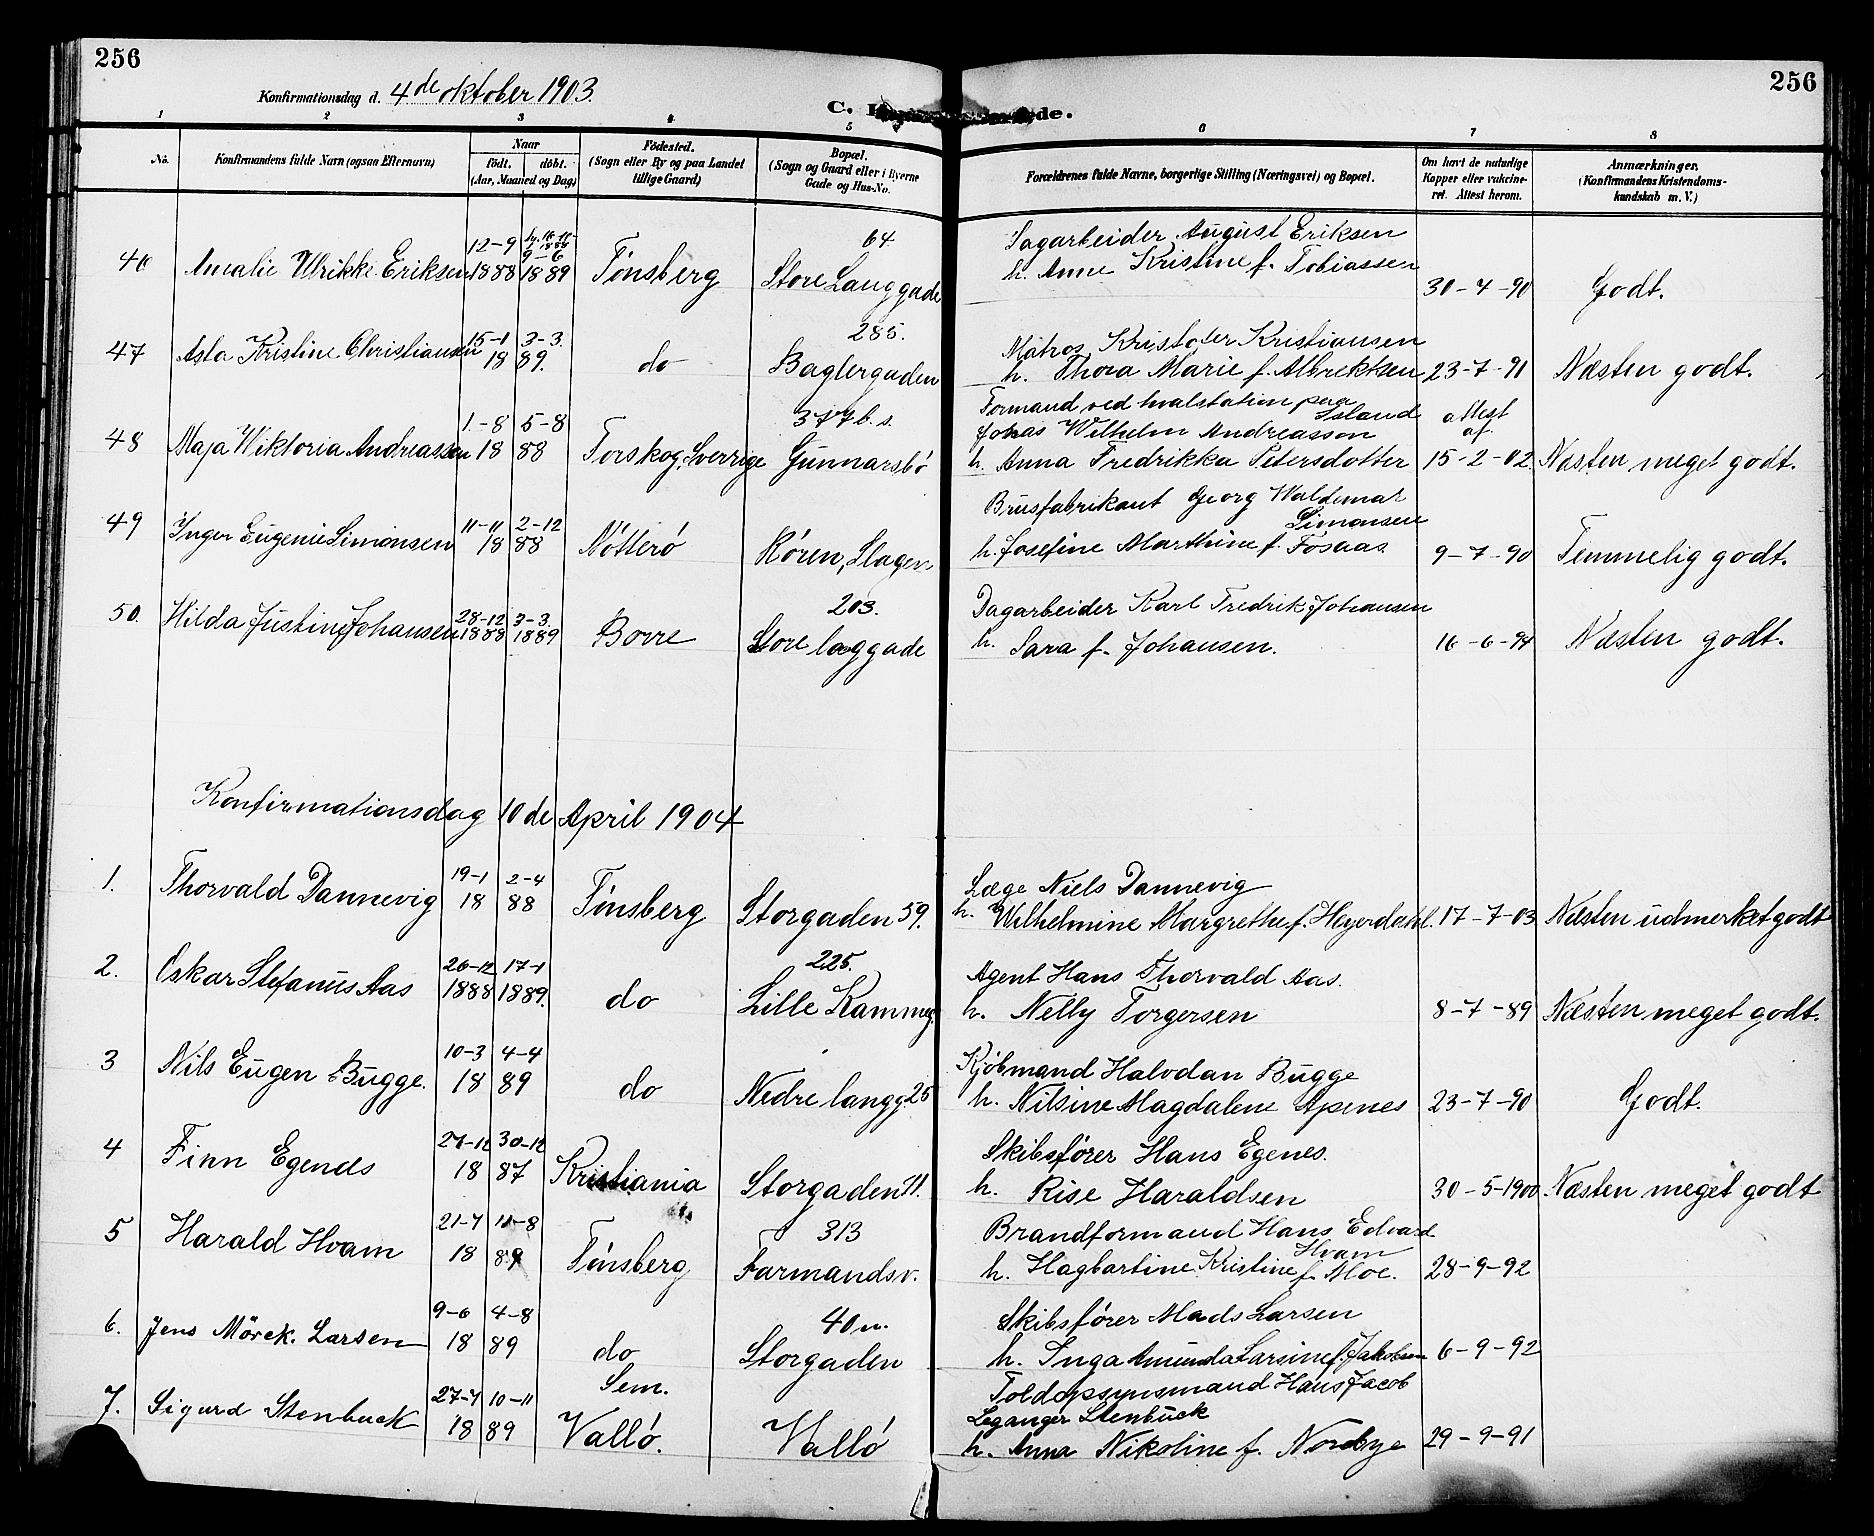 256
256
Konfirmationsdag d. 4de oktober 1903.
C.
1 2 3 4 5 6 7 8
No.
Konfirmandens fulde Navn (ogsaa Efternavn)
Naar
födt. döbt.
(Aar, Maaned og Dag)
Födested.
(Sogn eller By og paa Landet
tillige Gaard)
Bopæl.
(Sogn og Gaard eller i Byerne
Gade og Hus-No.
Forældrenes fulde Navne, borgerlige Stilling (Næringsvei) og Bopæl.
Om havt de naturlige
Kopper eller vakcine-
ret. Attest herom.
Anmærkninger.
(Konfirmandens Kristendoms-
kundskab m. V.)
12-9 9-6 64 Sagarbeider August Eriksen
46 Amalie Ulrikke Eriksen 1888 1889 Tönsberg Store Langgade h. Anne Kristine f. Tobiassen 30-4-90 Godt.
15-1 3-3. 285. Matros Kristoffer Kristiansen
47 Asta Kristine Christiansen 18 89. do Baglergaden h. Thora Marie f. Albrektsen 23-7-91 Næsten godt.
1-8 5-8 377 b. s. Formand ved hvalstation paa Island attest
Johas Wilhelm Andreasson af
48 Maja Wiktoria Andreassen 18 88 Torskog, Sverrige Gunnarsbö h. Anna Fredrikka Petersdotter 15-2-02. Næsten meget godt.
11-11 2-12 Brusfabrikant Georg Waldemar Simonsen
49 Inger Eugenie Simonsen 18 88 Nötterö Rören, Slagen h. Josefine Marthine f. Fosaas 9-7-90 Temmelig godt.
28-12 3-3. 203. Dagarbeider Karl Fredrik Johansen
50. Hilda Justine Johansen 1888 1889 Borre Store laggade h. Sara f. Johansen. 16-6-94 Næsten godt.
Konfirmationsdag 10de April 1904
19-1 2-4 Læge Niels Dannevig
1. Thorvald Dannevig 18 88 Tönsberg Storgaden 59. h. Wilhelmine Margrethe f. Heyerdahl. 17-7-03 Næsten udmerket godt
26-12 17-1 225. Agent Hans Thorvald Aas.
2. Oskar Stefanus Aas 1888 1889. do Lille Kammeg. h. Nelly Torgersen 8-7-89 Næsten meget godt.
10-3 4-4 Kjöbmand Halvdan Bugge
3 Nils Eugen Bugge. 18 89 do Nedre langg. 25 h. Nilsine Magdalene Apenes 23-7-90 Godt.
27-12 30-12 Skibsförer Hans Egenes.
4 Finn Egends 18 87 Kristiania Storgaden 71. h. Rise Haraldsen 30-5-1900 Næsten meget godt
21-7 11-8 313 Brandformand Hans Edvard Hvam
5 Harald Hvam 18 89 Tönsberg Farmandsv. h. Hagbartine Kristine f. Moe. 28-9-92
9-6 4-8 40 n. Skibsförer Mads Larsen
6. Jens Mörck. Larsen 18 89 do Storgaden h. Inga Amunda Larsine f. Jakobsen 6-9-92
27-7 10-11 Sem. Toldopsynsmand Hans Jacob
Leganger Stenbuck
7. Sigurd Stenbuck 18 89 Vallö. Vallö h. Anna Nikoline f. Nordbye 29-9-91